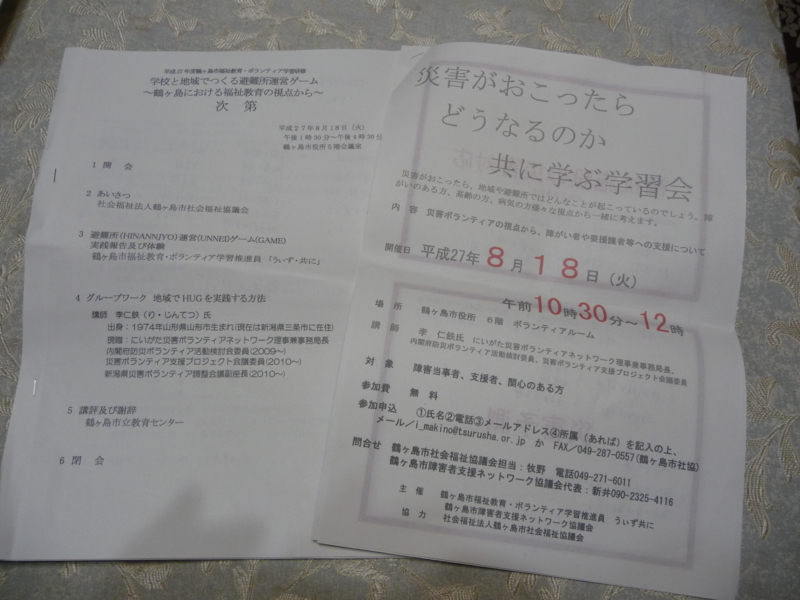 平成27年度鶴ヶ島市福祉教育・ボランティア学習研修
学校と地域でつくる避難所運営ゲーム
～鶴ヶ島における福祉教育の視点から～
次 第
平成27年8月18日(火)
午後1時30分～午後4時30分
鶴ヶ島市役所5階会議室
1 開 会
2 あいさつ
社会福祉法人鶴ヶ島市社会福祉協議会
3 避難所(HINANNJYO)運営(UNNEI)ゲーム(GAME)
実践報告及び体験
鶴ヶ島市福祉教育・ボランティア学習推進員 「うぃず・共に」
4 グループワーク 地域でHUGを実践する方法
講師 李仁鉄(り・じんてつ)氏
出身：1974年山形県山形市生まれ(現在は新潟県三条市に在住)
現職：にいがた災害ボランティアネットワーク理事兼事務局長
内閣府防災ボランティア活動検討会委員(2009～)
災害ボランティア支援プロジェクト会議委員(2010～)
新潟県災害ボランティア調整会議副座長(2010～)
5 講評及び謝辞
鶴ヶ島市立教育センター
6 閉 会
災害がおこったら
どうなるのか
共に学ぶ学習会
災害がおこったら、地域や避難所ではどんなことが起こっているのでしょう。障
がいのある方、高齢の方、病気の方様々な視点から一緒に考えます。
内 容 災害ボランティアの視点から、障がい者や要援護者等への支援について
開催日 平成27年8月18日(火)
午前10時30分～12時
場 所 鶴ヶ島市役所 6階 ボランティアルーム
講 師 李 仁鉄氏 にいがた災害ボランティアネットワーク理事兼事務局長、
内閣府防災ボランティア活動検討委員、災害ボランティア支援プロジェクト会議委員
対 象 障害当事者、支援者、関心のある方
参加費 無 料
参加申込 ①氏名②電話③メールアドレス④所属(あれば)を記入の上、
メール/i_makino@tsurusha.or.jp か FAX/049-287-0557(鶴ヶ島市社協)
問合せ 鶴ヶ島市社会福祉協議会担当：牧野 電話049-271-6011
鶴ヶ島市障害者支援ネットワーク協議会代表：新井090-2325-4116
主 催 鶴ヶ島市福祉教育・ボランティア学習推進員 うぃず共に
鶴ヶ島市障害者支援ネットワーク協議会
協 力 社会福祉法人鶴ヶ島市社会福祉協議会